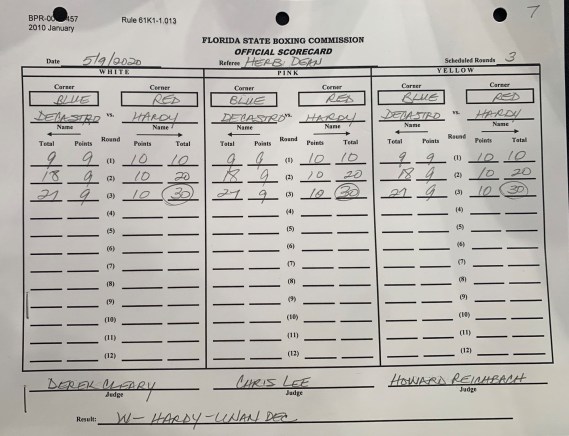 BPR-00 457 Rule 61K1-1.013 7
2010 January
FLORIDA STATE BOXING COMMISSION
OFFICIAL SCORECARD
Date 5/9/2020 Referee HERB DEAN Scheduled Rounds 3
WHITE PINK YELLOW
Corner Corner Corner Corner Corner Corner
BLUE RED BLUE RED BLUE RED
DECASTRO vs. HARDY DECASTRO vs. HARDY DECASTRO vs. HARDY
Name Name Name Name Name Name
Total Points Round Points Total Total Points Round Points Total Total Points Round Points Total
9 9 (1) 10 10 9 9 (1) 10 10 9 9 (1) 10 10
18 9 (2) 10 20 18 9 (2) 10 20 18 9 (2) 10 20
27 9 (3) 10 30 27 9 (3) 10 30 27 9 (3) 10 30
(4) (4) (4)
(5) (5) (5)
(6) (6) (6)
(7) (7) (7)
(8) (8) (8)
(9) (9) (9)
(10) (10) (10)
(11) (11) (11)
(12) (12) (12)
DEREK CLEARY CHRIS LEE HOWARD
Judge Judge Judge
Result: W- HARDY - UNAN DEC